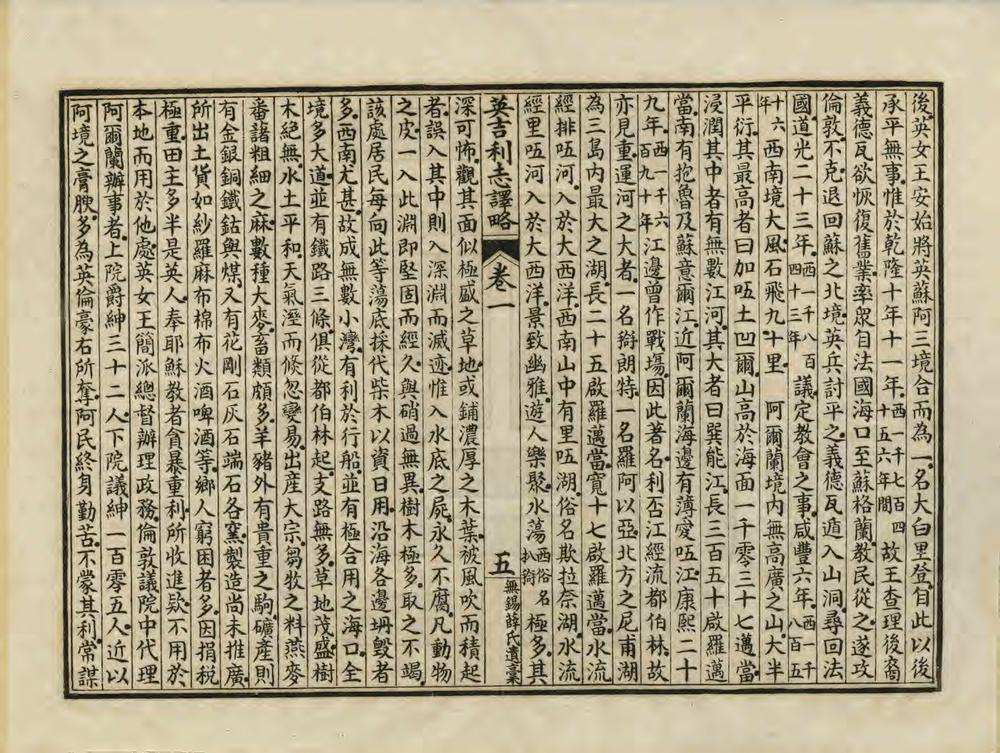 後英女王安始將英蘇阿三境合而為一名大白里登自此以後
承平無事惟於乾隆十年十一年西一千七百四十五六年間故王查理後裔
義德瓦欲恢復舊業率眾自法國海口至蘇格蘭教民從之遂攻
倫敦不克退回蘇之北境英兵討平之義德瓦遁入山洞尋回法
國道光二十三年西一千八百四十三年議定教會之事咸豐六年一千八百五
十六年西南境大風石飛九十里　阿爾蘭境內無高廣之山大半
平衍其最高者曰加咓土凹爾山高於海面一千零三十七邁當
浸潤其中者有無數江河其大者曰巽能江長三百五十啟羅邁
當南有抱魯及蘇意爾江近阿爾蘭海邊有薄愛咓江康熙二十
九年西一千六百九十年江邊曾作戰場因此著名利否江經流都伯林故
亦見重運河之大者一名搿朗特一名羅阿以亞北方之尼甫湖
為三島內最大之湖長二十五啟羅邁當寬十七啟羅邁當水流
經排咓河入於大西洋西南山中有里咓湖俗名欺拉奈湖水流
經里咓河入於大西洋景致幽雅遊人樂聚水蕩西俗名扒搿極多其
英吉利志譯略　卷一　五　無錫薛氏遺稾
深可怖觀其面似極盛之草地或鋪濃厚之木葉被風吹而積起
者誤入其中則入深淵而滅迹惟入水底之屍永久不腐凡動物
之皮一入此淵即堅固而經久與硝過無異樹木極多取之不竭
該處居民每向此等蕩底採代柴木以資日用沿海各邊坍毀者
多西南尤甚故成無數小灣有利於行船並有極合用之海口全
境多大道並有鐵路三條俱從都伯林起支路無多草地茂盛樹
木絕無水土平和天氣溼而倏忽變易出產大宗芻牧之料燕麥
番諸粗細之麻數種大麥畜類頗多羊豬外有貴重之駒礦產則
有金銀銅鐵鈷與煤又有花剛石灰石端石各窯製造尚未推廣
所出土貨如紗羅麻布棉布火酒啤酒等鄉人窮困者多因捐稅
極重田主多半是英人奉耶穌教者貪暴重利所收進款不用於
本地而用於他處英女王簡派總督辦理政務倫敦議院中代理
阿爾蘭辦事者上院爵紳三十二人下院議紳一百零五人近以
阿境之膏腴多為英倫豪右所奪阿民終身勤苦不蒙其利常謀